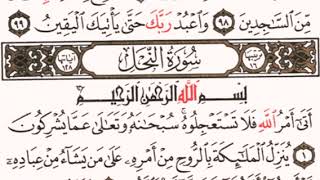 مِّنَ ٱلسَّٰجِدِينَ ٩٨ وَٱعْبُدْ رَبَّكَ حَتَّىٰ يَأْتِيَكَ ٱلْيَقِينُ ٩٩
ترتيبها ١٦ سُورَةُ النَّحْلِ آياتها ١٢٨
بِسْمِ ٱللَّهِ ٱلرَّحْمَٰنِ ٱلرَّحِيمِ
أَتَىٰٓ أَمْرُ ٱللَّهِ فَلَا تَسْتَعْجِلُوهُ سُبْحَٰنَهُۥ وَتَعَٰلَىٰ عَمَّا يُشْرِكُونَ
١ يُنَزِّلُ ٱلْمَلَٰٓئِكَةَ بِٱلرُّوحِ مِنْ أَمْرِهِۦ عَلَىٰ مَن يَشَآءُ مِنْ عِبَادِهِۦٓ